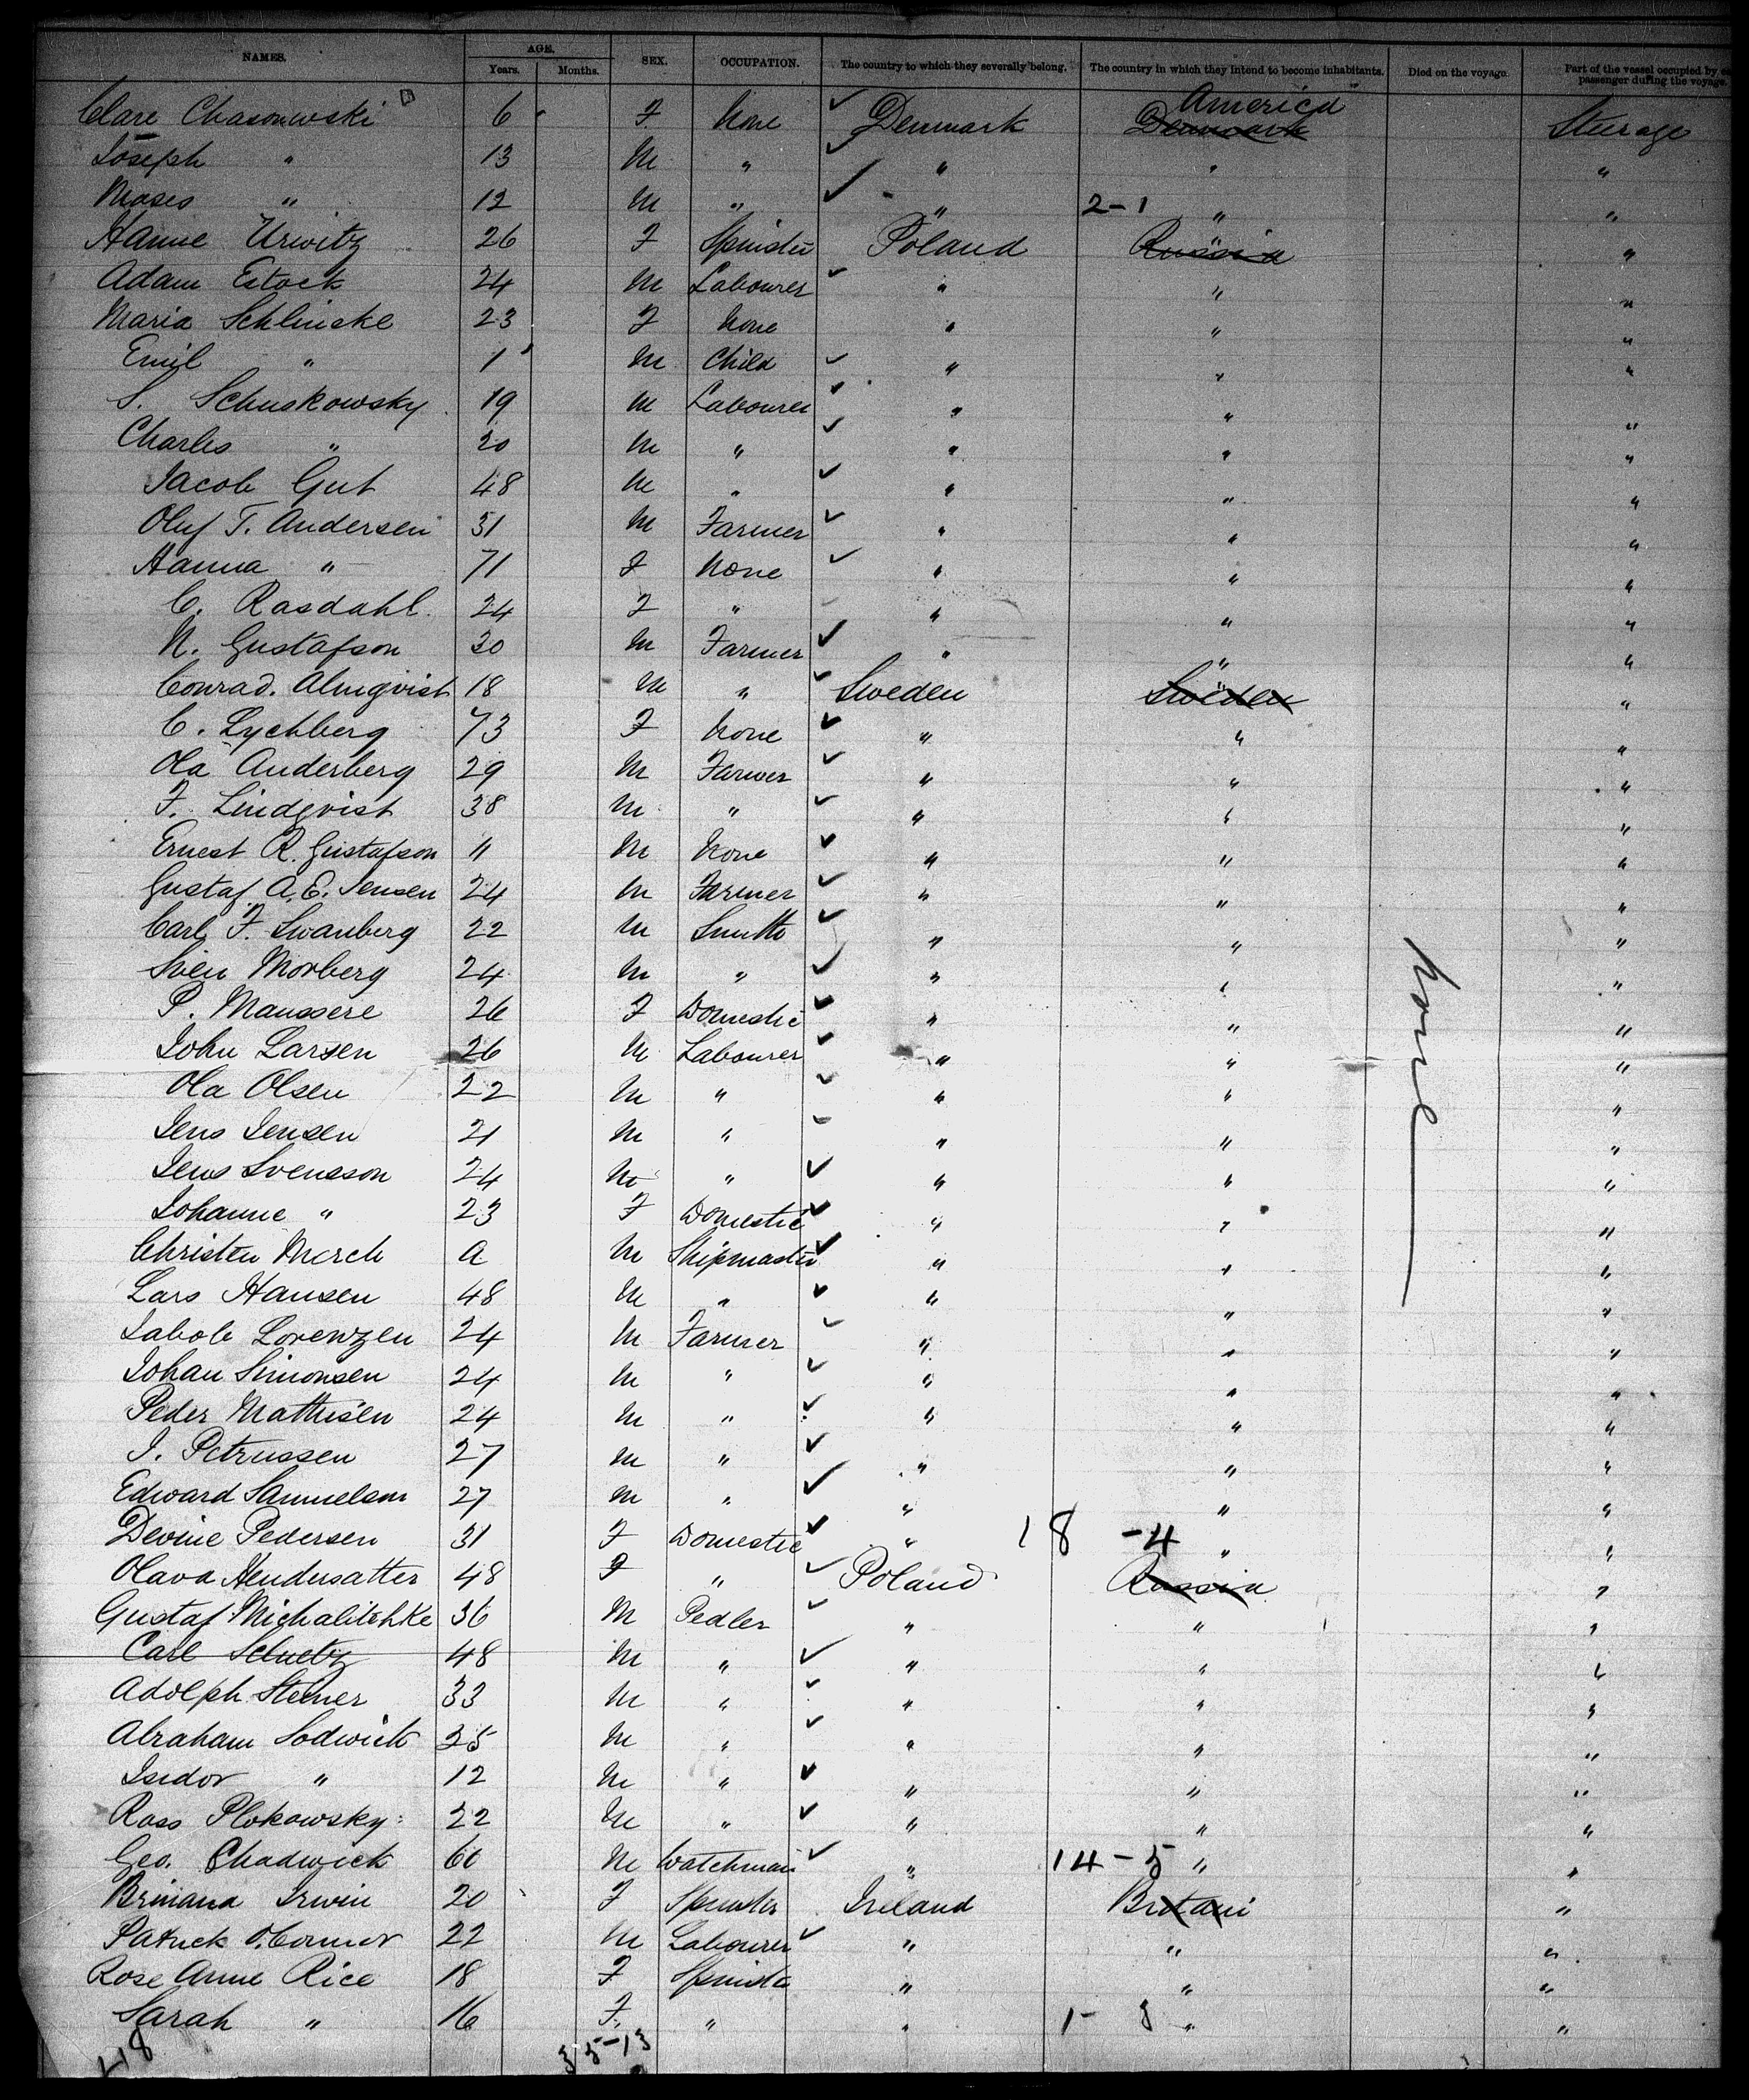 NAMES. AGE. Years. Months. SEX. OCCUPATION. The country to which they severally belong. The country in which they intend to become inhabitants. Died on the voyage. Part of the vessel occupied by passenger during the voyage.
America
Clare Chasonwski 6 F None ✓ Denmark Denmark Steerage
Joseph " 13 M " ✓ " " "
Moses " 12 M " ✓ " 2-1 " "
Hanne Urwitz 26 F Spinster Poland Russia "
Adam Estock 24 M Labourer ✓ " " "
Maria Schlinske 23 F None " " "
Emil " 1 M Child ✓ " " "
S. Schuskowsky 19 M Labourer ✓ " " "
Charles " 20 M " ✓ " " "
Jacob Gut 48 M " ✓ " " "
Oluf T. Andersen 31 M Farmer ✓ " " "
Hanna " 71 F None ✓ " " "
C. Rasdahl 24 F " " " "
N. Gustafson 30 M Farmer ✓ " " "
Conrad. Almqvist 18 M " ✓ Sweden Sweden "
C. Lychberg 73 F None ✓ " " "
Ola Anderberg 29 M Farmer ✓ " " "
F. Lindqvist 38 M " ✓ " " "
Ernest R. Gustafson 11 M None ✓ " " "
Gustaf A. E. Jensen 24 M Farmer ✓ " " "
Carl F. Swanberg 22 M Smith ✓ " " "
Sven Morberg 24 M " ✓ " " "
P. Maussere 26 F Domestic ✓ " " "
John Larsen 26 M Labourer ✓ " " "
Ola Olsen 22 M " ✓ " " "
Jens Jensen 21 M " ✓ " " "
Jens Svensson 24 M " ✓ " " "
Johanne " 23 F Domestic ✓ " " "
Christen Merch a M Shipmaster ✓ " " "
Lars Hansen 48 M " ✓ " " "
Jabob Lorenzen 24 M Farmer ✓ " " "
Johan Simonsen 24 M " ✓ " " "
Peder Mathisen 24 M " ✓ " " "
J. Petrussen 27 M " ✓ " " "
Edward Samuelson 27 M " ✓ " " "
Devine Pedersen 31 F Domestic ✓ " 18 -4 " "
Olava Hendusatter 48 F " ✓ Poland Russia "
Gustaf Michalitchke 36 M Pedler ✓ " " "
Carl Schuetz 48 M " ✓ " " "
Adolph Steiner 33 M " ✓ " " "
Abraham Sodwick 25 M " ✓ " " "
Isidor " 12 M " ✓ " " "
Ross Plokowsky 22 M " ✓ " " "
Geo. Chadwick 60 M Watchman ✓ " 14-5 " "
Brinana Irwin 20 F Spinster Ireland Britani "
Patrick O'Connor 22 M Labourer ✓ " " "
Rose Anne Rice 18 F Spinster " " "
Sarah " 16 F " " 1- 8 " "
None
218 35-13